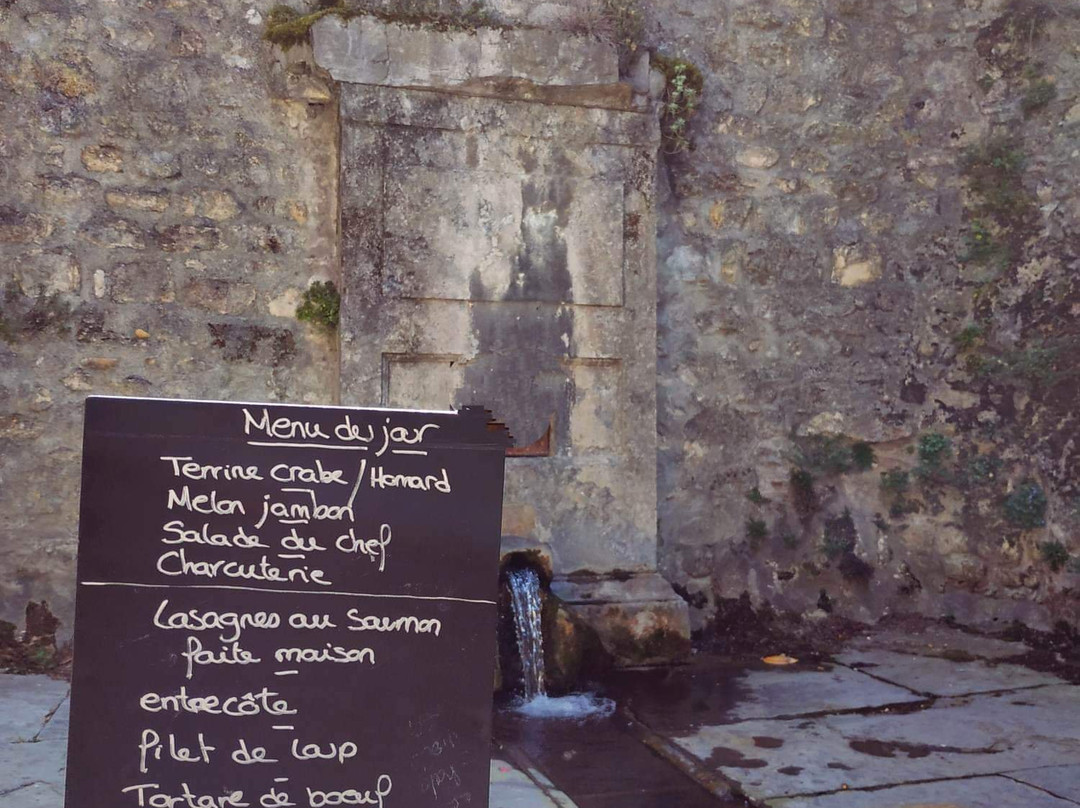 Menu du jour
Terrine crabe / Homard
Melon jambon
Salade du chef
Charcuterie
Lasagnes au Saumon
faite maison
entrecôte
filet de loup
Tartare de boeuf